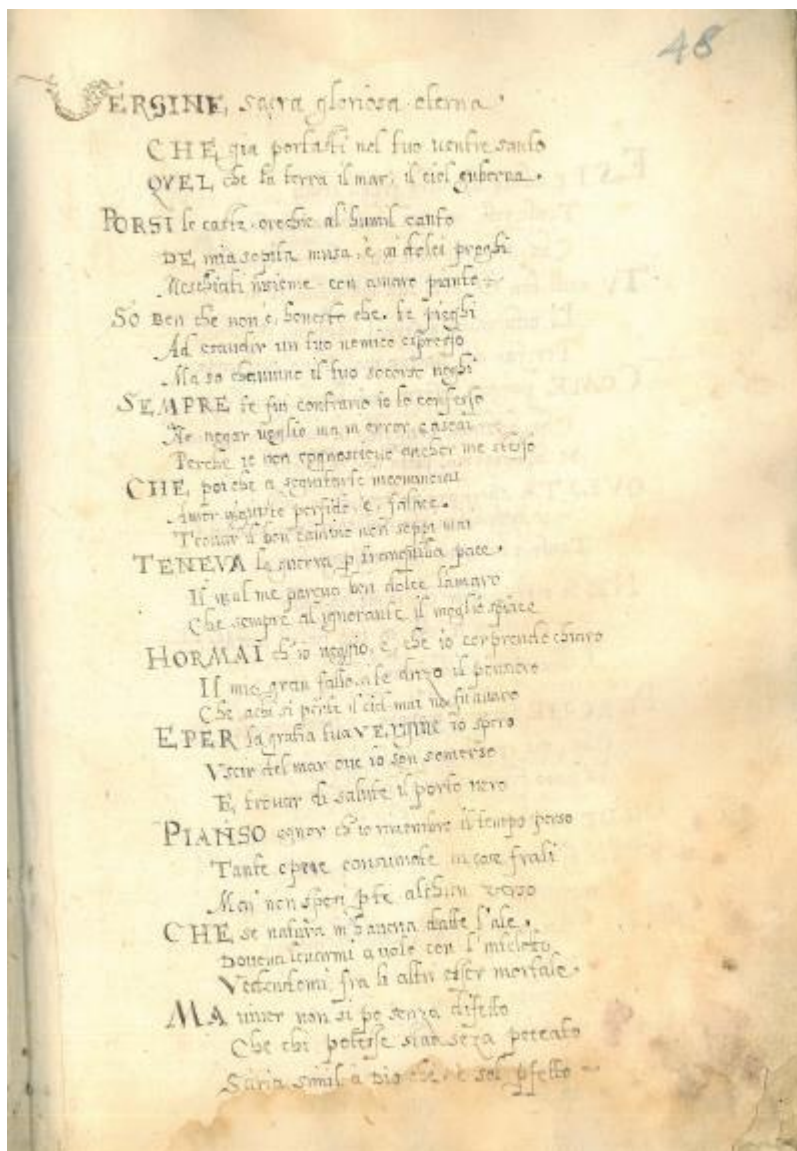 48
VERGINE, sacra gloriosa eterna.
CHE, gia portasti nel tuo uentre santo
QVEL, che la terra il mar, il ciel guberna.
PORSI le caste orechie al humil canto
DE, mia sopita musa, e ai dolci preghi
Meschiati insieme con amaro pianto
SO ben che non è, honesto che, te pieghi
Ad exaudir un tuo nemico espresso
Ma so il tuo socorso neghi
SEMPRE te fui contrario io lo confesso
Ne negar ueglio ma in error cascai
Perche io non ancher me stesso
CHE, poi che a seguitarte incominciai
Amor perfido, e, falace.
Trouar il bon camino non seppi mai
TENEVA la guerra p tranquilla pace.
Il mal me pareua ben dolce lamaro
Che sempre al ignorante il meglio spiace
HORMAI ch'io neggio, e, che io comprendo chiaro
Il mio gran fallo, a te drizo il pensiero
Che achi si pente il ciel mai no fu auaro
EPER la gratia tua VERGINE io spero
Vscir del mar oue io son somerso
E, trouar di salute il porto uero
PIANSO ognor ch'io rimembro il tempo perso
Tante opere consumate in cose frali
Mai non speri
CHE se natura m'haueua date l'ale.
Doueua leuarmi a uole con l'inteleto
Vedendomi fra li altri esser mortale.
MA uiuer non si po senza difetto
Che chi potesse star seza peccato
Saria simil a Dio che è sol pfetto